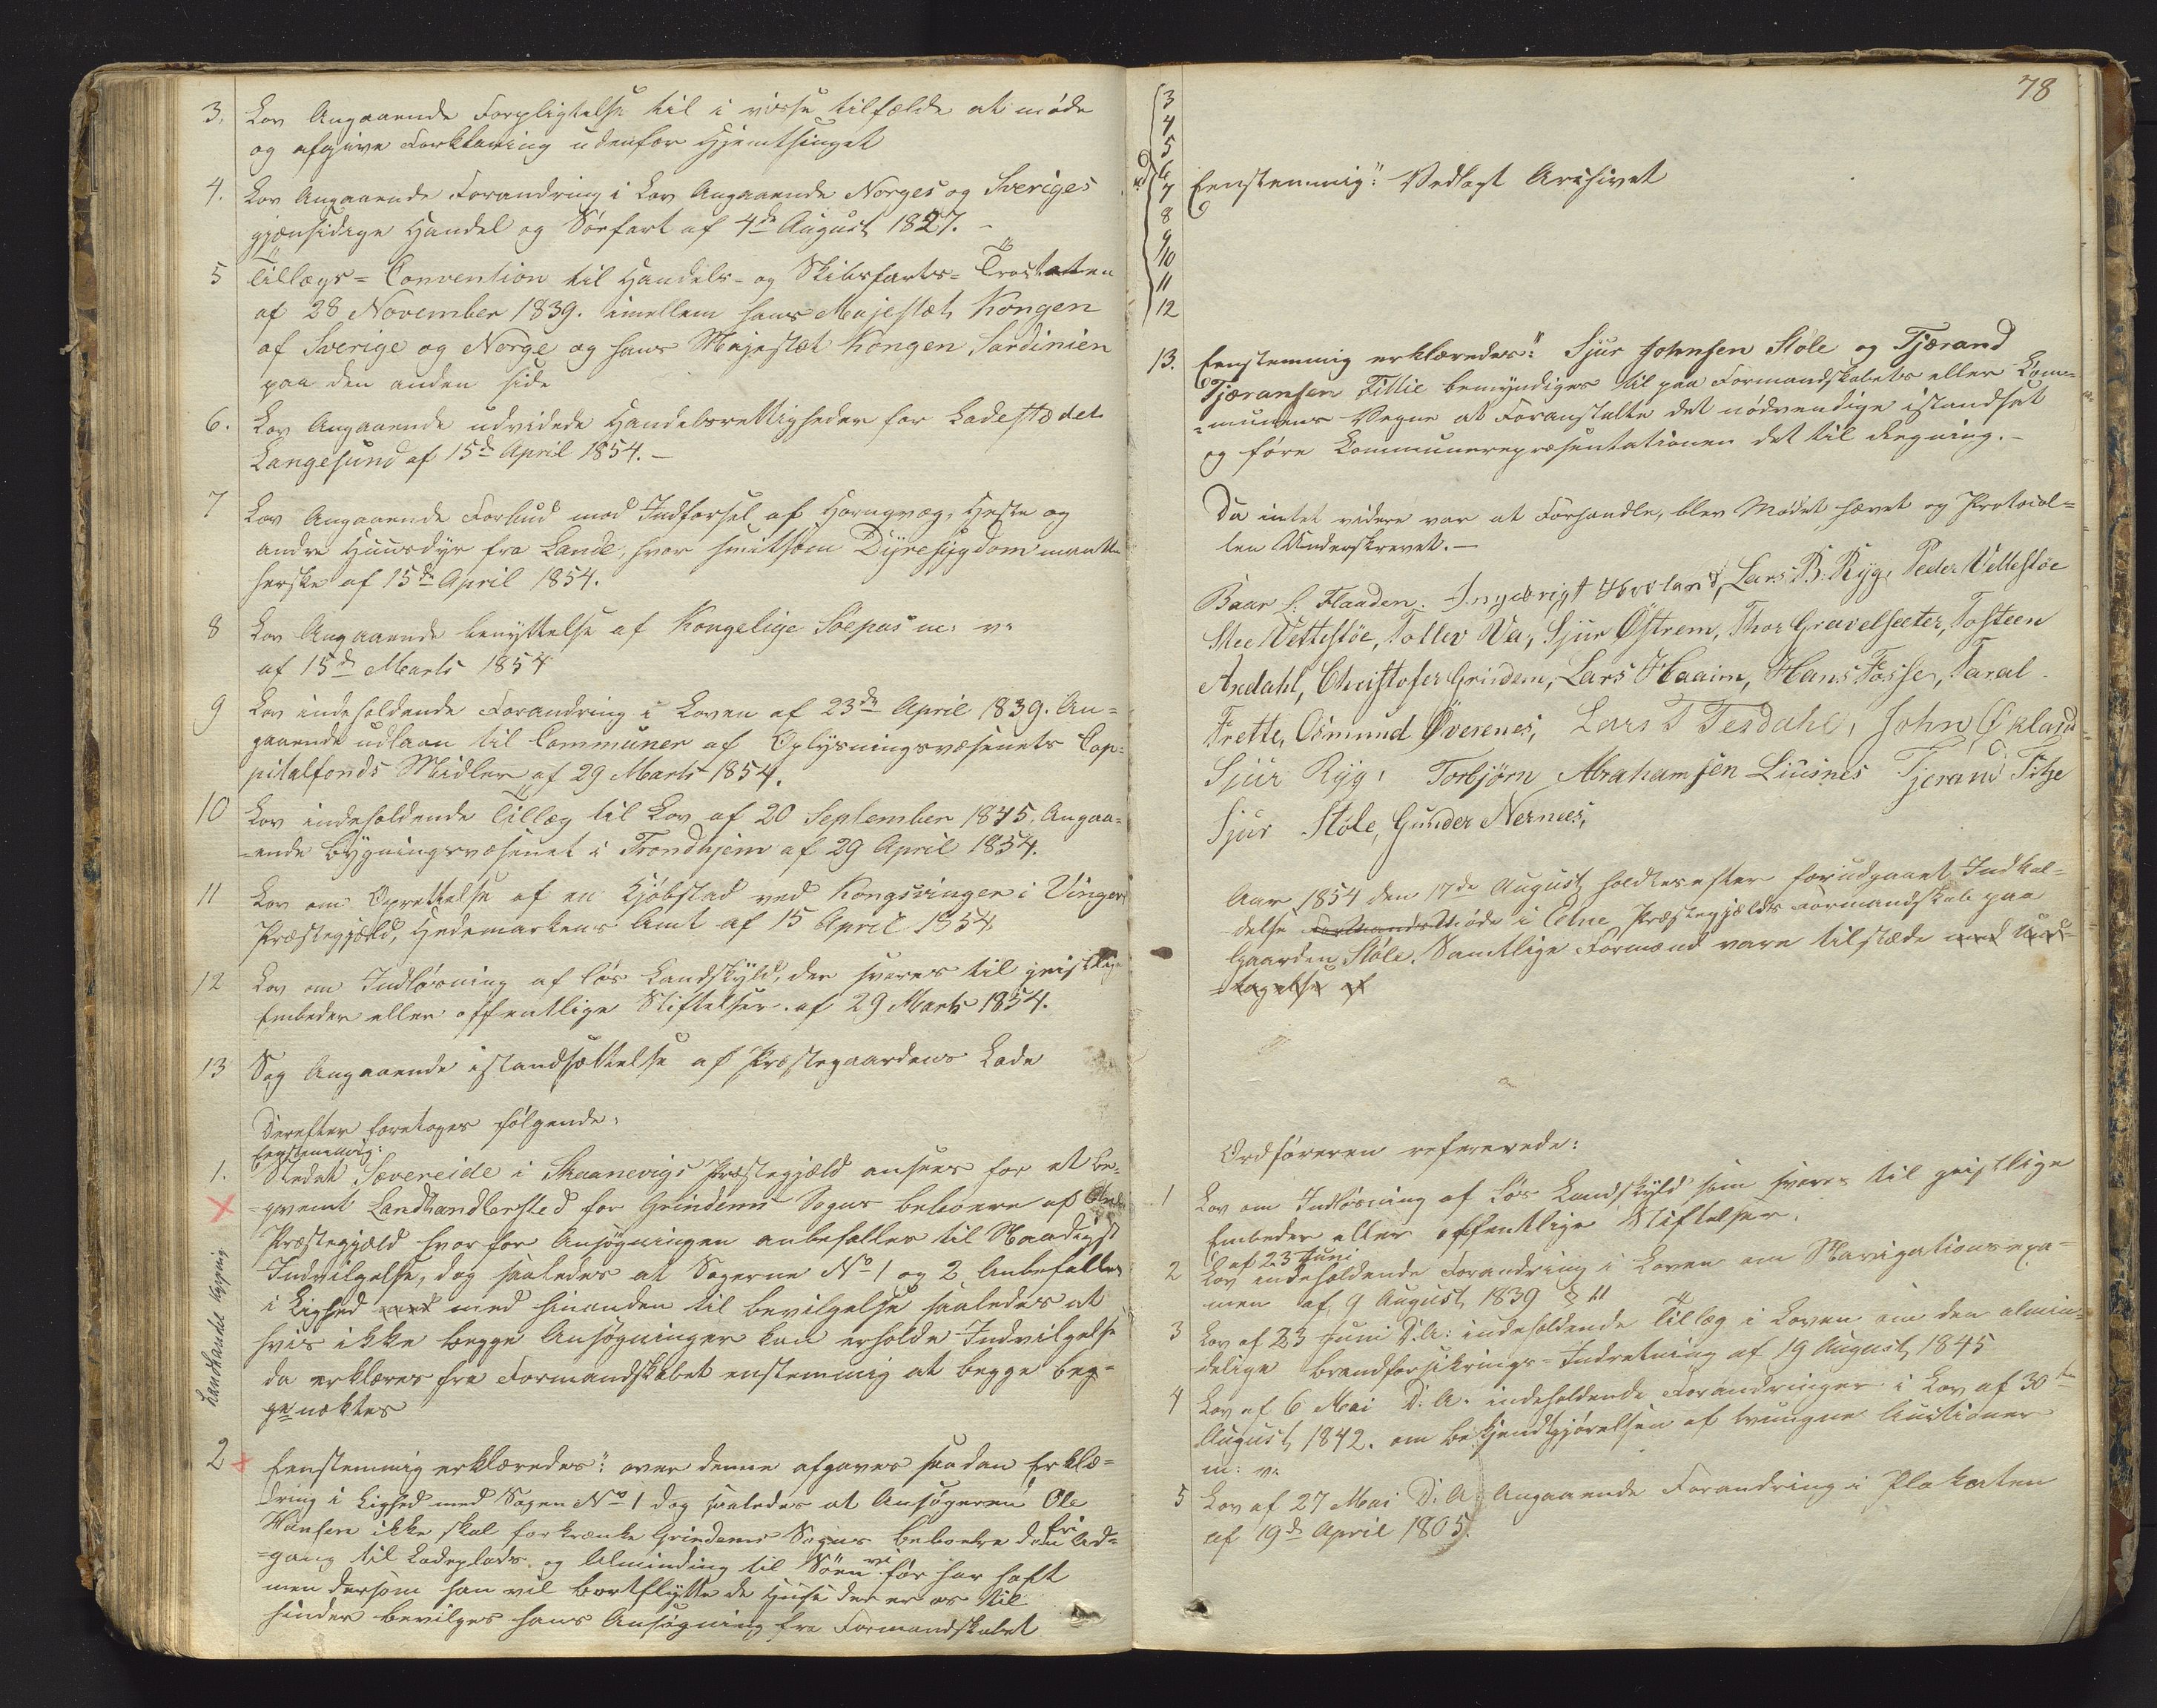 3. Lov Angaaende Forpligtelse til i visse tilfælde at møde
og afgive Forklaring udenfor Hjemthinget
4. Lov Angaaende Forandring i Lov Angaaende Norges og Sveriges
gjensidige Handel og Söefart af 4de August 1827. –
5 Tillægs=Convention til Handels- og Skibsfarts=Tractaten
af 28 November 1839. imellem hans Majestæt Kongen
af Sverige og Norge og hans Majestæt Kongen Sardinien
paa den anden side
6. Lov Angaaende udvidede Handelsrettigheder for Ladestædet
Langesund af 15de April 1854. –
7 Lov Angaaende Forbud mod Indførsel af Hornqvæg, Heste og
andre Huusdyr fra Lande, hvor smitsom Dyresygdom maatte
herske af 15de April 1854.
8 Lov Angaaende benyttelse af Kongelige Söepas m: v:
af 15de Marts 1854
9 Lov indeholdende Forandring i Loven af 23de April 1839. An=
gaaende udlaan til Communer af Oplysningsvæsenets Cap=
pitalfonds Midler af 29 Marts 1854.
10 Lov indeholdende Tillæg til Lov af 20 September 1845. Angaa=
=ende bygningsvæsenet i Trondhjem af 29 April 1854.
11 Lov om Oprettelse af en Kjøbstad ved Kongsvinger i Vinger
Præstegjæld, Hedemarkens Amt af 15 April 1854.
12 Lov om Indløsning af løs Landskyld, der svares til geistlige
Embeder eller offentlige Stiftelser. af 29 Marts 1854.
13 Sag Angaaende istandsættelse af Præstegaardens Lade
Derefter foretoges følgende:
Eenstemmig:
1. Stedet Sævereide i Skaanevigs Præstegjæld ansees for et be=
=qvemt Landhandlersted for Grindems Sogns beboere af Etne
Præstegjæld hvorfor Ansøgningen anbefalles til Naadigst
Indvilgelse, dog saaledes at Sagerne No 1 og 2 Anbefalles
i Lighed med med hinanden til bevilgelse saaledes at
hvis ikke begge Ansøgninger kan erholde Indvilgelse
da erklæres fra Formandskabet enstemmig at begge beg=
ge nektes
Landhandel
2 Eenstemmig erklæredes: over denne afgaves saadan Erklæ=
dring i Lighed med Sagen No 1 dog saaledes at Ansøgeren Ole
Hansen ikke skal forkrænke Grindems Sogns beboere den fri Ad=
=gang til Ladeplads og Alminding til Söen vi før har haft
men dersom han vil bortflytte de Huse der er os til
hinder bevilges hans Ansøgning fra Formandskabet
78
3
4
5
6
7
8
9
10
11
12
Eenstemmig: Vedlagt Archivet
13. Eenstemmig erklæredes: Sjur Johnsen Støle og Tjærand
Tjæransen Fittie bemyndiges til paa Formandskabets eller Com=
=munens Vegne at Foranstalte det nødvendige istandsat
og føre Communerepræsentationen det til Regning. –
Da intet videre var at Forhandle, blev Mødet hævet og Protocol=
len Underskrevet. –
Baar L. Flaaden. Ingebrigt Hovland, Lars B. Ryg, Peder Vettestöe
Vettestöe, Tollev Va, Sjur Östrem, Thor Gravelseter, Tosteen
Andahl, Christofer Grindem, Lars Haaim, Hans Fosse, Taral
Frette, Osmund Øverenes, Lars T Tesdahl, John Økland
Sjur Ryg, Torbjörn Abrahamsen Liusnes Tjerand Fitje
Sjur Støle, Gunder Nernes,
Aar 1854 den 17de August holdtes efter forudgaaet Indkal=
delse Formandsmøde i Etne Præstegjælds Formandskab paa
Gaarden Støle. Samtlige Formænd vare tilstæde med Und=
=tagelse af
Ordføreren refererede:
1 Lov om Indløsning af Løs Landskyld som svares til geistlige
Embeder eller offentlige Stiftelser.
af 23 Juni
2 Lov indeholdende Forandring i Loven om Navigationsexa=
men af 9 August 1839 § 11
3 Lov af 23 Juni D: A: indeholdende Tillæg i Loven om den almin=
delige brandforsikrings=Indretning af 19 August 1845
4 Lov af 6 Mai D: A: indeholdende Forandringer i Lov af 30te
August 1842. om bekjendtgjørelsen af tvungne Auctioner
m: v:
5 Lov af 27 Mai D: A: Angaaende Forandring i Plakaten
af 19de April 1805.